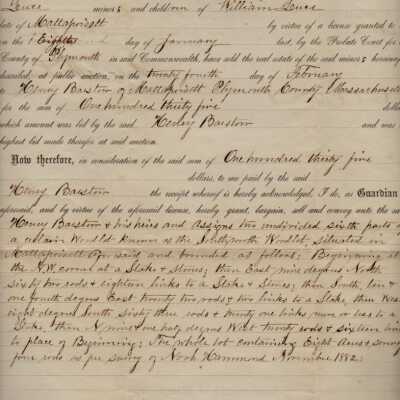 Luce minors and children of William Luce
late of Mattapoisett by virtue of a license granted to
on the Eighth day of January last, by the Probate Court for
County of Plymouth in said Commonwealth, have sold the real estate of the said minors hereinafter
described, at public auction, on the twenty fourth day of February
to Henry Barstow of Mattapoisett Plymouth County Massachusetts
for the sum of One hundred thirty five dollars
which amount was bid by the said Henry Barstow and was
highest bid made therefor at said auction.
Now therefore, in consideration of the said sum of One hundred thirty five
dollars, to me paid by the said
Henry Barstow the receipt whereof is hereby acknowledged, I do, as Guardian
aforesaid, and by virtue of the aforesaid license, hereby grant, bargain, sell and convey unto the said
Henry Barstow & his heirs and assigns two undivided sixth parts of
a certain Woodlot known as the Southworth Woodlot, situated in
Mattapoisett said and bounded as follows; Beginning at
the N.W. corner at a Stake & Stones; then East nine degrees North
sixty two rods & eighteen links to a Stake & Stones; then South, ten &
one fourth degrees East twenty two rods & two links to a Stake, then West
eight degrees South sixty three rods & twenty one links more or less to a
Stake, then N. nine & one half degrees West twenty rods & sixteen links
to place of Beginning; The whole lot containing Eight Acres &
four rods as per survey of Noah Hammond November 1882.